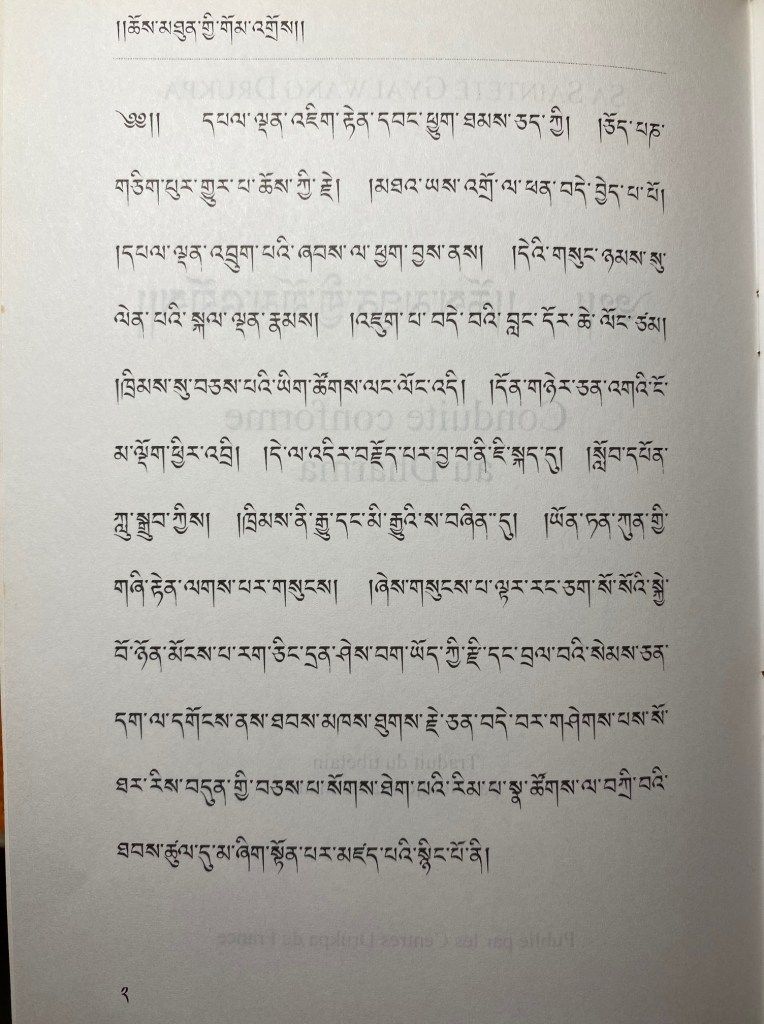 །།ཆོས་མཐུན་གྱི་གོམ་འགྲོས།།
༄༅།། དཔལ་ལྡན་འཇིག་རྟེན་དབང་ཕྱུག་ཐམས་ཅད་ཀྱི། །ཅོད་པཎ་
གཅིག་པུར་གྱུར་པ་ཆོས་ཀྱི་རྗེ། །མཐའ་ཡས་འགྲོ་ལ་ཕན་བདེ་བྱེད་པ་པོ།
།དཔལ་ལྡན་འབྲུག་པའི་ཞབས་ལ་ཕྱག་བྱས་ནས། །དེའི་གསུང་ཉམས་སུ་
ལེན་པའི་སྐལ་ལྡན་རྣམས། །འཇུག་པ་བདེ་བའི་བླང་དོར་ཆེ་ལོང་ཙམ།
།ཁྲིམས་སུ་བཅས་པའི་ཡིག་ཚོགས་ལང་ལོང་འདི། །དོན་གཉེར་ཅན་འགའི་ངོ་
མ་ལྡོག་ཕྱིར་འབྲི། །དེ་ལ་འདིར་བརྗོད་པར་བྱ་བ་ནི་ཇི་སྐད་དུ། །སློབ་དཔོན་
ཀླུ་སྒྲུབ་ཀྱིས། །ཁྲིམས་ནི་རྒྱུ་དང་མི་རྒྱུའི་ས་བཞིན་དུ། །ཡོན་ཏན་ཀུན་གྱི་
གཞི་རྟེན་ལགས་པར་གསུངས། །ཞེས་གསུངས་པ་ལྟར་རང་ཅག་སོ་སོའི་སྐྱེ་
བོ་ཉོན་མོངས་པ་རག་ཅིང་དྲན་ཤེས་བག་ཡོད་ཀྱི་རྫི་དང་བྲལ་བའི་སེམས་ཅན་
དག་ལ་དགོངས་ནས་ཐབས་མཁས་ཐུགས་རྗེ་ཅན་བདེ་བར་གཤེགས་པས་སོ་
ཐར་རིས་བདུན་གྱི་བཅས་པ་སོགས་ཐེག་པའི་རིམ་པ་སྣ་ཚོགས་ལ་བཀྲི་བའི་
ཐབས་ཚུལ་དུ་མ་ཞིག་སྟོན་པར་མཛད་པའི་སྙིང་པོ་ནི།
༢